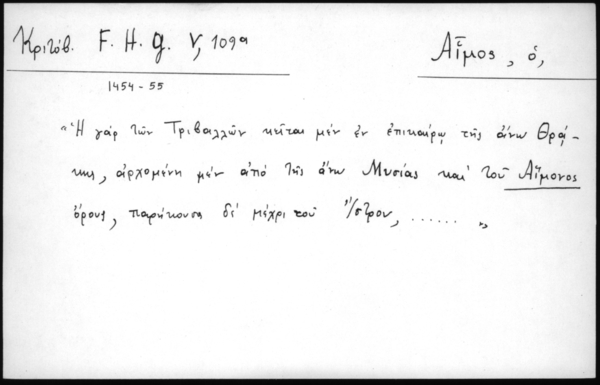 Κριτόβ. F. H. g. V, 109α
Αἷμος, ὁ,
1454-55
"Ἡ γάρ τῶν Τριβαλλῶν κεῖται μέν ἐν ἐπικαίρῳ τῆς ἄνω Θρᾴ-
κης, ἀρχομένη μέν ἀπό τῆς ἄνω Μυσίας καί τοῦ Αἵμονος
ὄρους, παρήκουσα δέ μέχρι τοῦ Ἴστρου, ...... „